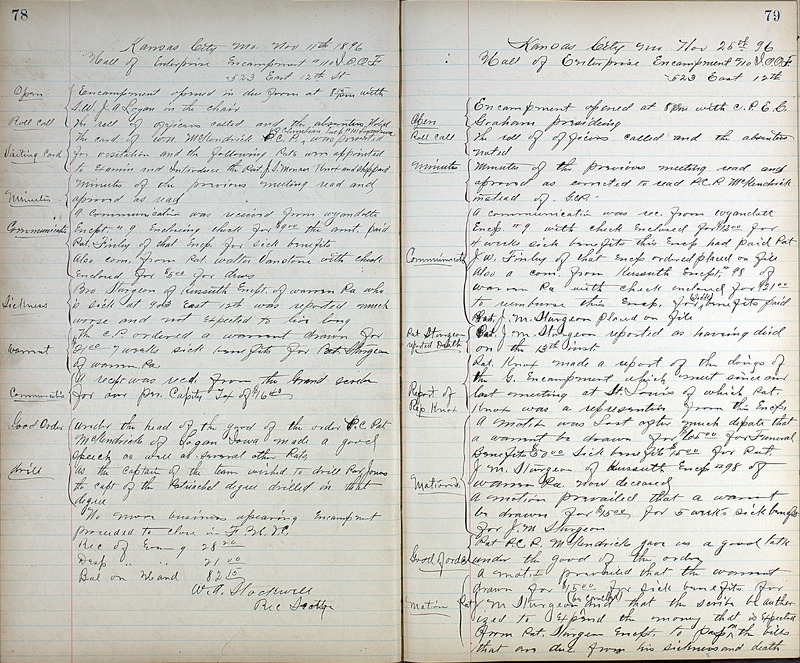 78
Kansas City Mo Nov 11th 1896
Hall of Enterprise Encampment #10 I.O.O.F
523 East 12th St
Open
Encampment opened in due form at 8 pm with
S.W. J.A. Logan in the chair
Roll call
The roll of officers called and the absentees Noted
Visiting Card
The card of Wm McKendrick P.C.P. was presented
for visitation and the following Pats were appointed
to Examin and introduce the Pat. J.S. Menown Knox and Sheppard
Minutes
Minutes of the previous meeting read and
aproved as read
Communicatn
A Communication was received from Wyandotte
Encpt #9 Enclosing check for $8.00 the amt. paid
Pat. Finley of that Encp for sick benefits
Also com. from Pat. Walter Vanstone with check
Enclosed for $5.00 for dues
Sickness
Bro Sturgeon of Kussuth Encpt. of Warren Pa who
is sick at 903 East 12th was reported much
worse and not Expected to live long
Warrant
The C.P. ordered a warrant drawn for
$21.00 7 weeks sick benefits for Pat. Sturgeon
of Warren Pa
Communicatn
A recpt was recd. from the Grand scribe
for our Per. Capita Tax of $16.00
Good Order
Under the head of the good of the order P.C. Pat
McKendrick of Logan Iowa made a good
speech as well as several other Pats
drill
as the captain of the team wished to drill Pat Jones
the capt of the Patriachal degree drilled in that
degree
No more business apearing Encampment
proceeded to close in F. H. &C
Rec of Evening 28
Desp " " 21.00
Bal on Hand 82.15
W.A. Stockwell
Rec Scribe
79
Kansas City Mo Nov 25th 96
Hall of Enterprise Encampment #10 I.O.O.F
523 East 12th
Open
Encampment opened at 8 pm with C.P. E.C.
Graham presiding
Roll call
The roll of officers called and the absentees
noted
Minutes
Minutes of the previous meeting read and
aproved as corrected to read P.C.P. McKendrick
instead of
Communicatn
A communication was rec. from Wyandotte
Encp. #9 with check Enclosed for $12.00 for
4 weeks sick benefits this Encp had paid Pat
J.W. Finley of that Encp ordered placed on file
Also a com from Kussuth Encpt. #98 of
Warren Pa with check enclosed for $21.00
to reimburse this Encp. for sick benefits paid
Pat. J.M. Sturgeon placed on file
Pat Sturgeon reported Death
Pat J.M. Sturgeon reported as having died
on the 13th inst.
Report of Rep Knox
Pat. Knox made a report of the doings of
the G. Encampment which met since our
last meeting at St. Louis of which Pat.
Knox was a representive from this Encp.
Motions
A motion was lost after much debate that
a warrant be drawn for $65.00 for Funeral
Benefits $50.00 Sick benefits $15.00 for Pat.
J.M. Sturgeon of Kussuth Encp #98 of
Warren Pa. Now deceased
A motion prevailed that a warrant
be drawn for $15.00 for 5 weeks sick benefits
for J.M. Sturgeon
Good of order
Pat P.C.P. McKendrick gave us a good talk
under the good of the order
Motion
A motion prevailed that the warrant
drawn for $15.00 for sick benefits for
Pat J.M. Sturgeon be canceled and that the scribe be author
ized to Expend the money that is Expected
from Pat. Sturgeon Encpt. to pay the bills
that are due from his sickness and death